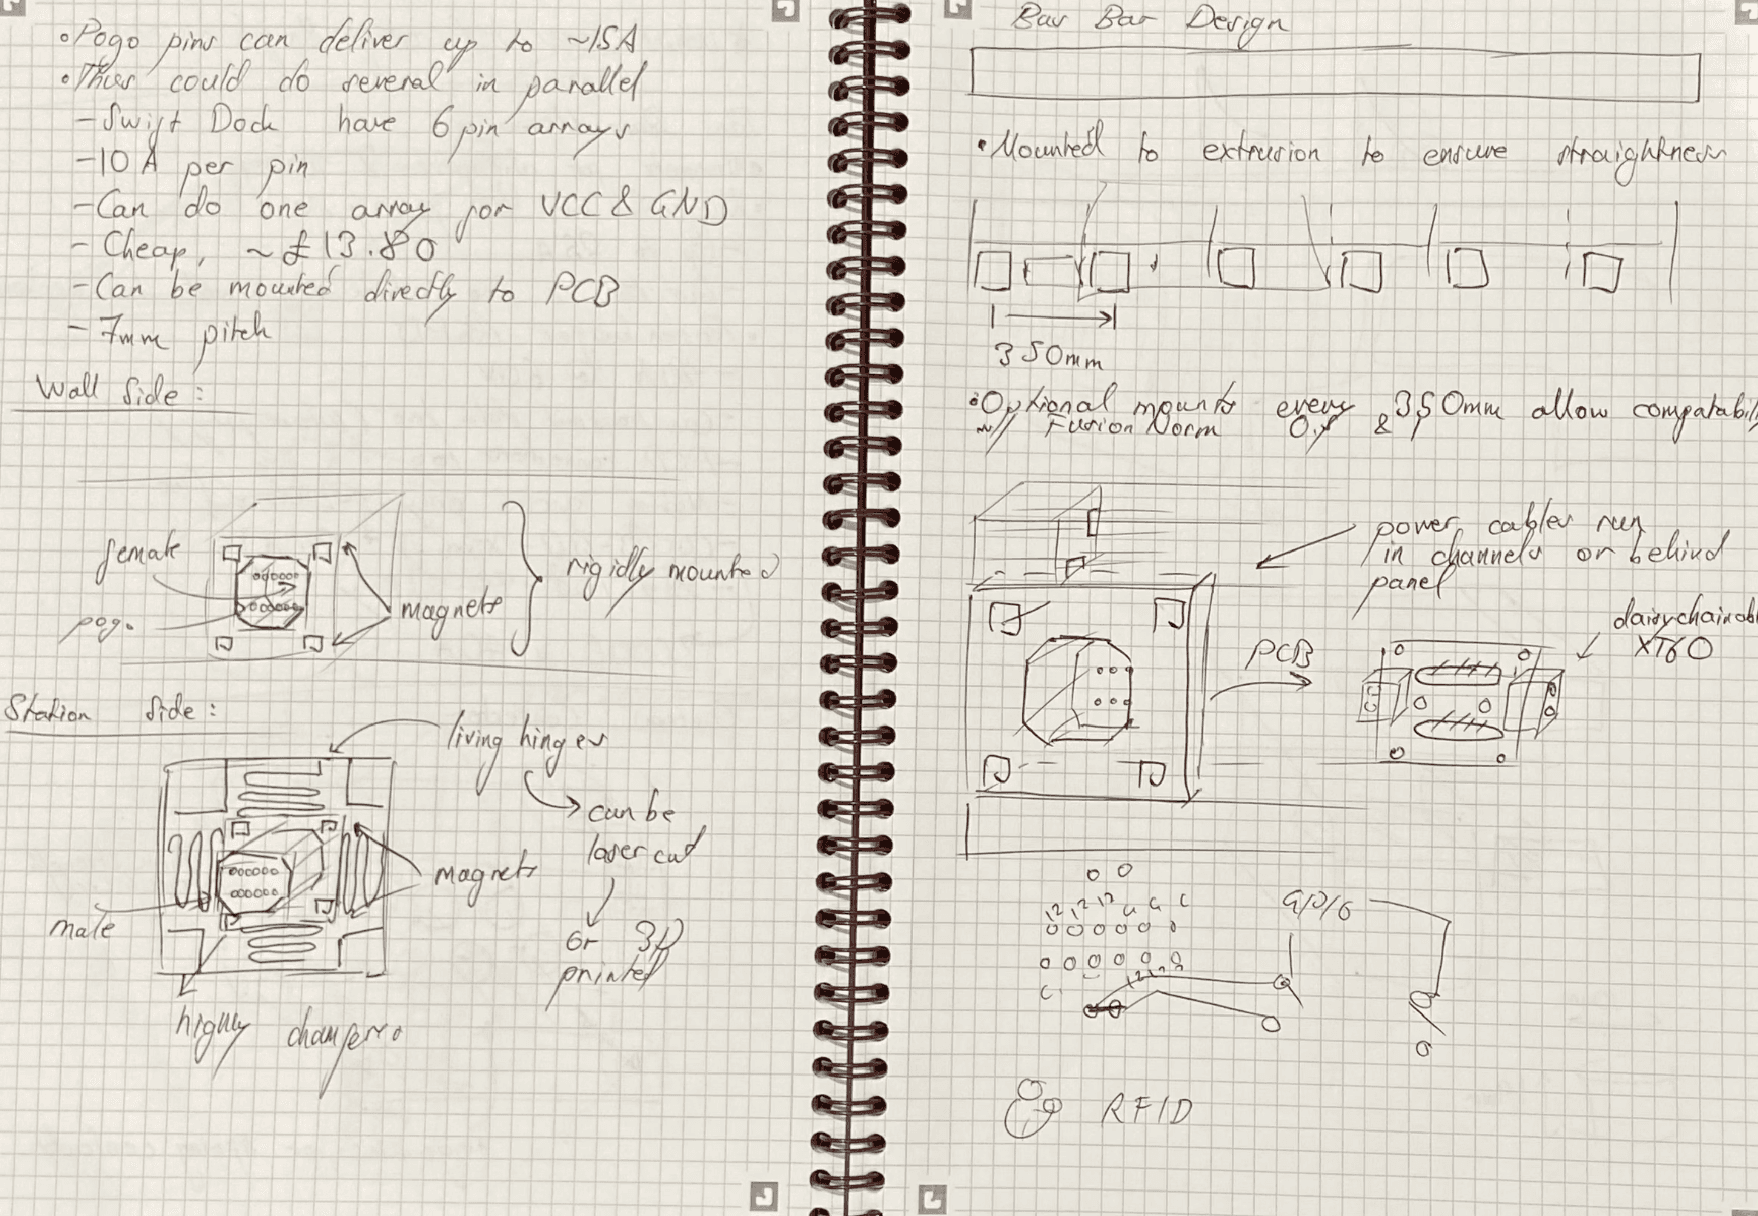 •Pogo pins can deliver up to ~15A
•Thus could do several in parallel
-Swift Dock have 6 pin arrays
-10 A per pin
-Can do one array for VCC & GND
- Cheap, ~£13.80
-Can be mounted directly to PCB
- 7mm pitch
Wall Side:
female
pogo
magnets
rigidly mounted
Station Side:
living hinges
can be
laser cut
or 3D
printed
magnets
male
highly
Bar Design
•Mounted to extrusion to ensure straightness
350mm
•Optional mounts every & 350mm allow compatabil
w/ Fusion Norm
power cables run
in channels or behind
panel
PCB
daisychainabl
XT60
12 12 12 G G C
RFID